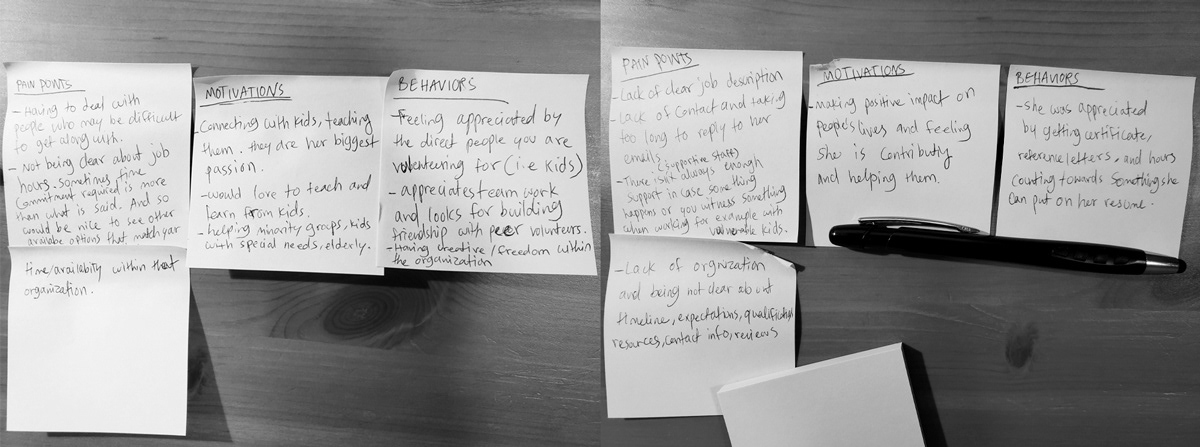 PAIN POINTS
- Having to deal with
people who may be difficult
to get along with.
- Not being clear about job
hours. sometimes time
commitment required is more
than what is said. And so
would be nice to see other
available options that match your
time/availability within that
organization.
MOTIVATIONS
- Connecting with kids, teaching
them, they are her biggest
passion.
- would love to teach and
learn from kids.
- helping minority groups, kids
with special needs, elderly.
BEHAVIORS
- Feeling appreciated by
the direct people you are
volenteering for (i.e kids)
- appreciates team work
and looks for building
friendship with peer volunteers.
- Having creative/freedom within
the organization
PAIN POINTS
- Lack of clear job description
- Lack of Contact and taking
too long to reply to her
emails
(supportive staff)
- There isn't always enough
Support in case something
happens or you witness something
when working for example with
vulnerable kids.
- Lack of orgnization
and being not clear about
timeline, expectations, qualification
resources, contact info, reviews
MOTIVATIONS
- making positive impact on
people's lives and feeling
she is Contributing
and helping them.
BEHAVIORS
- she was appreciated
by getting certificate,
reference letters, and hours
Counting towards Something she
Can put on her resume.